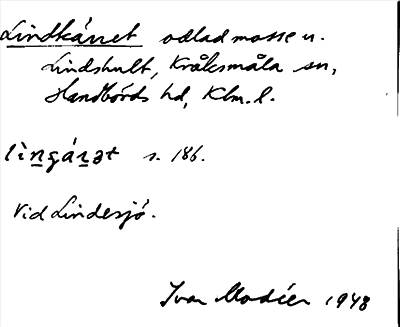 Lindkärret odlad mosse u.
Lindshult, Kråksmåla sn,
Handbörds hd, Klm. l.
lìngárət s. 186.
Vid Lindesjö.
Ivar Modéer 1948